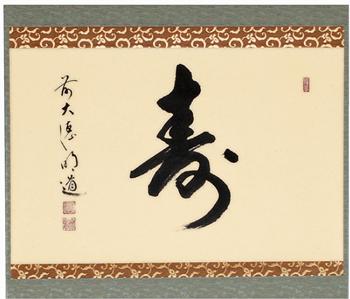 寿
前大徳明道